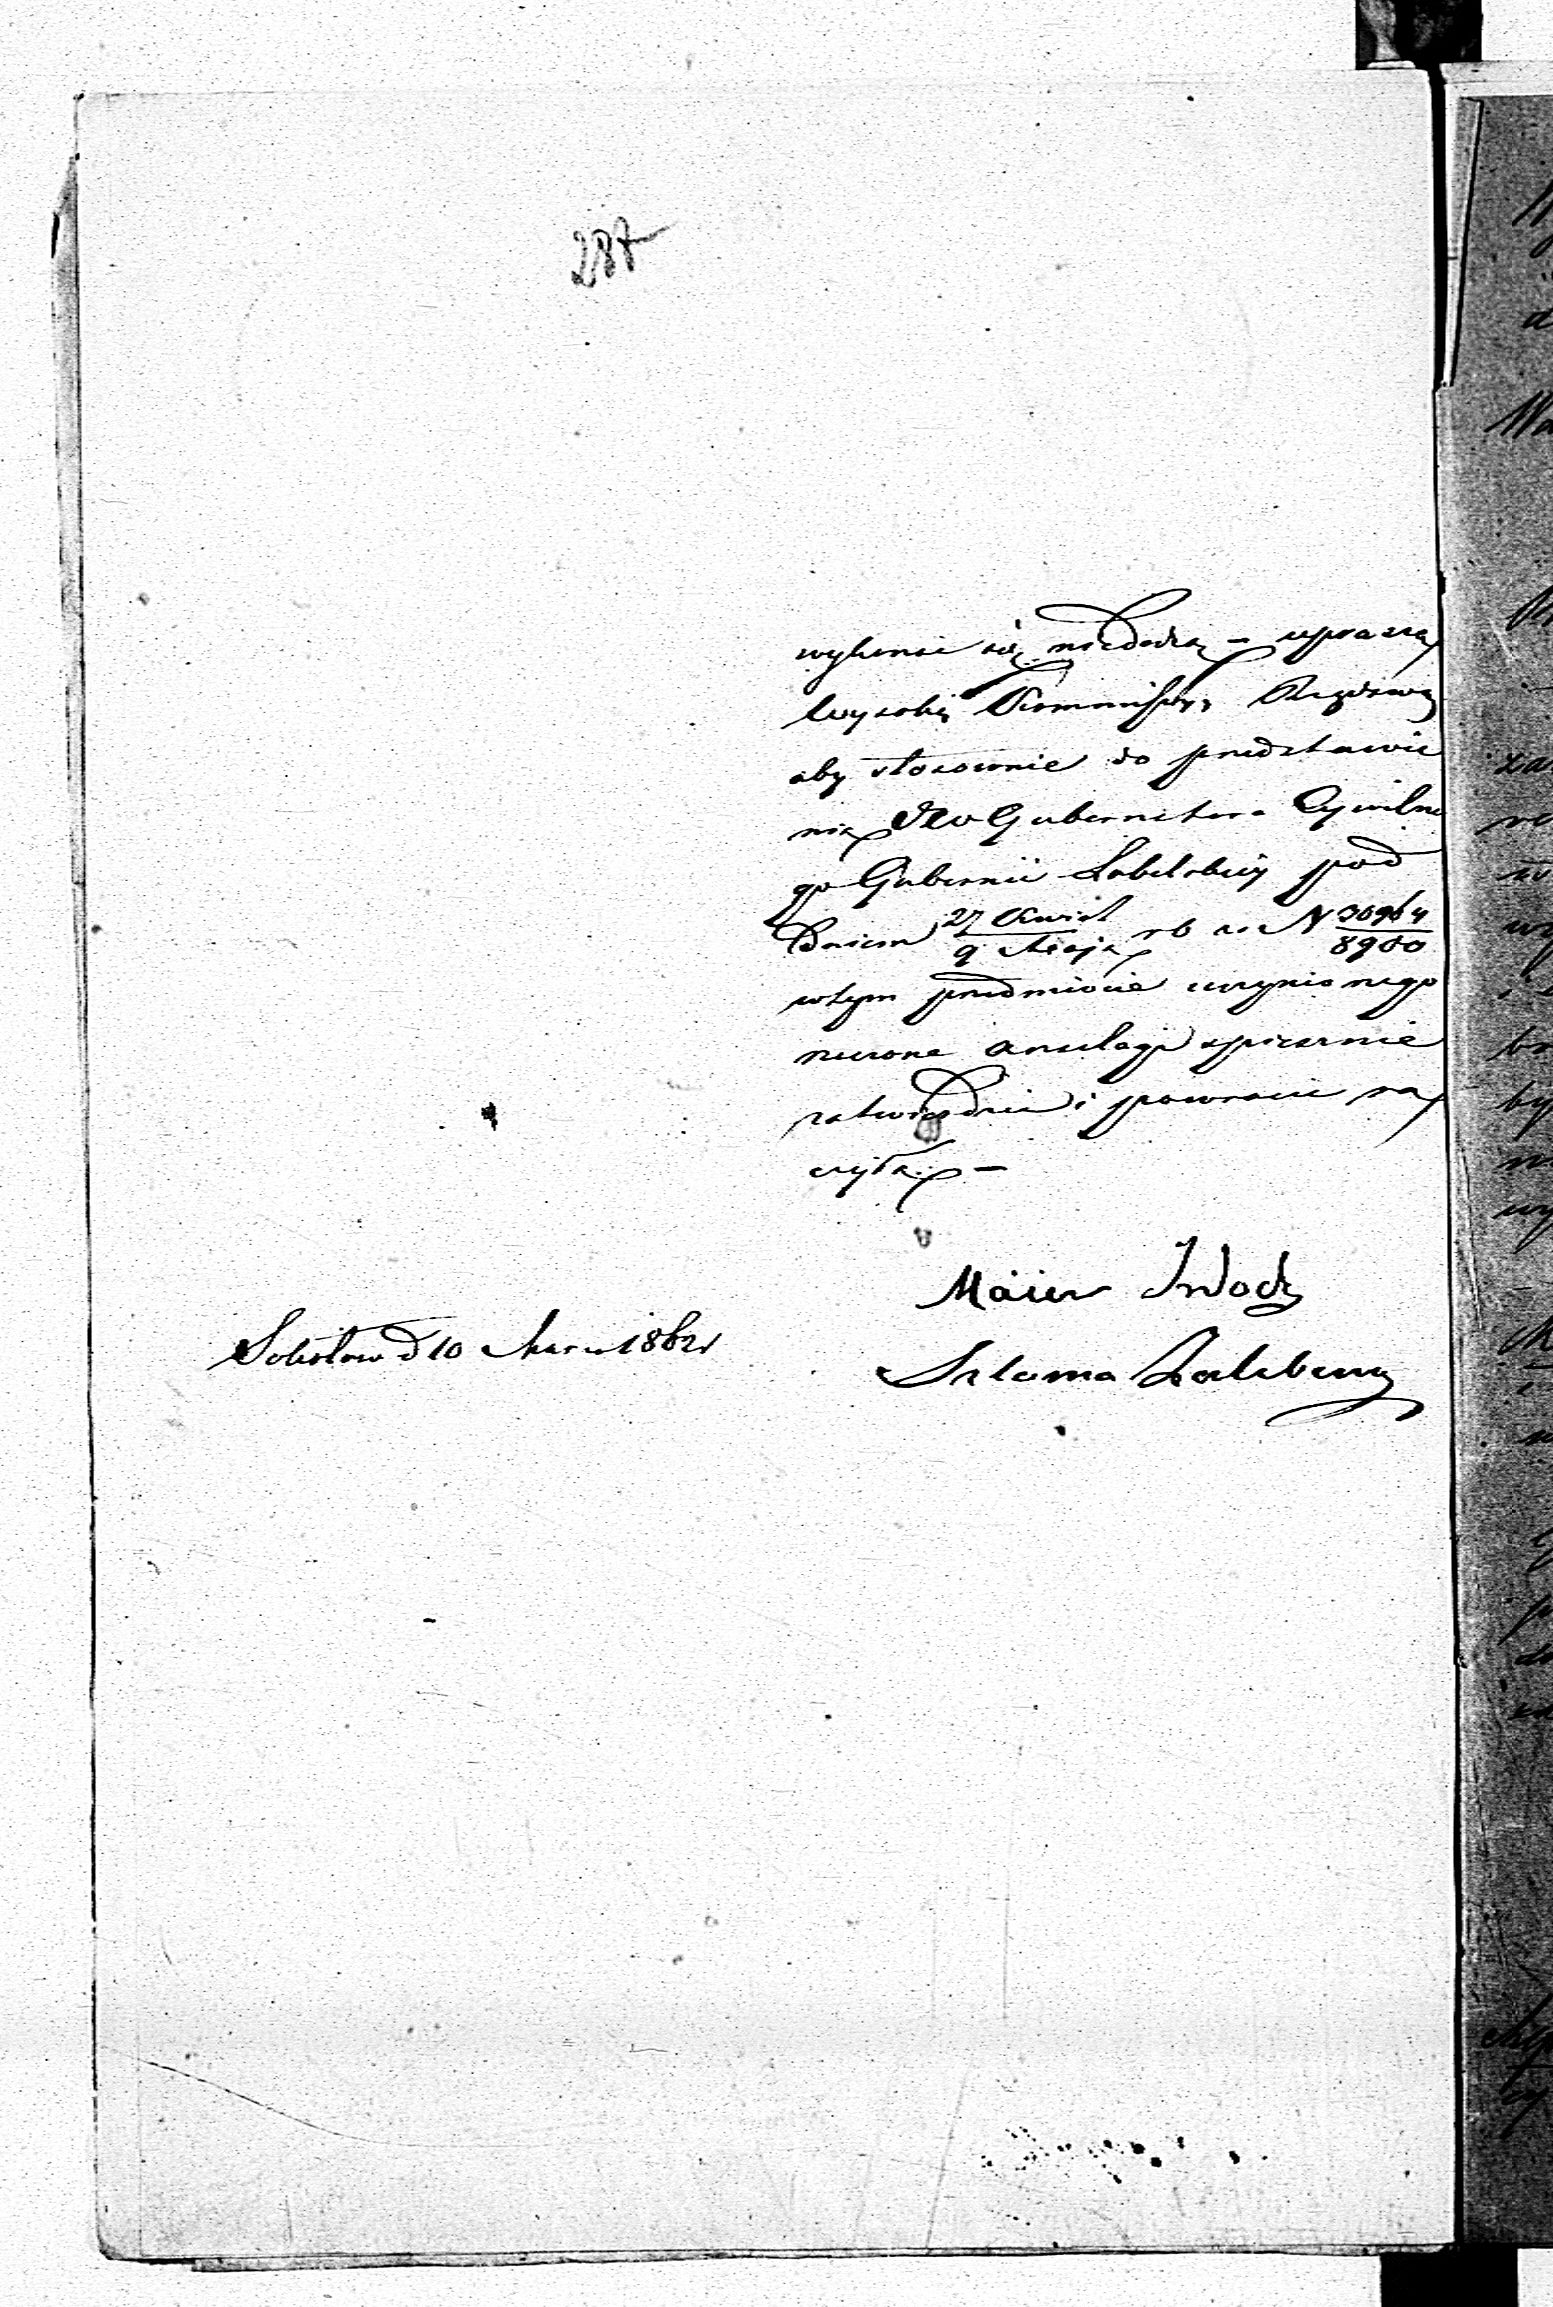 287
się niedadzą – upraszają
Wysokiej Kommissyi Rządowej
aby stosownie do przedstawie
nia JW Gubernatora Cywilne
go Gubernii Lubelskiej pod
dniem 27 Kwiet / 9 Maja rb za N 30964 / 8980
wtym przedmiocie uczynionego
anszlagi spiesznie
zatwierdzić i powrócić ra
czyła. –
Maier
Szloma
Sokołow d 10 1862 r